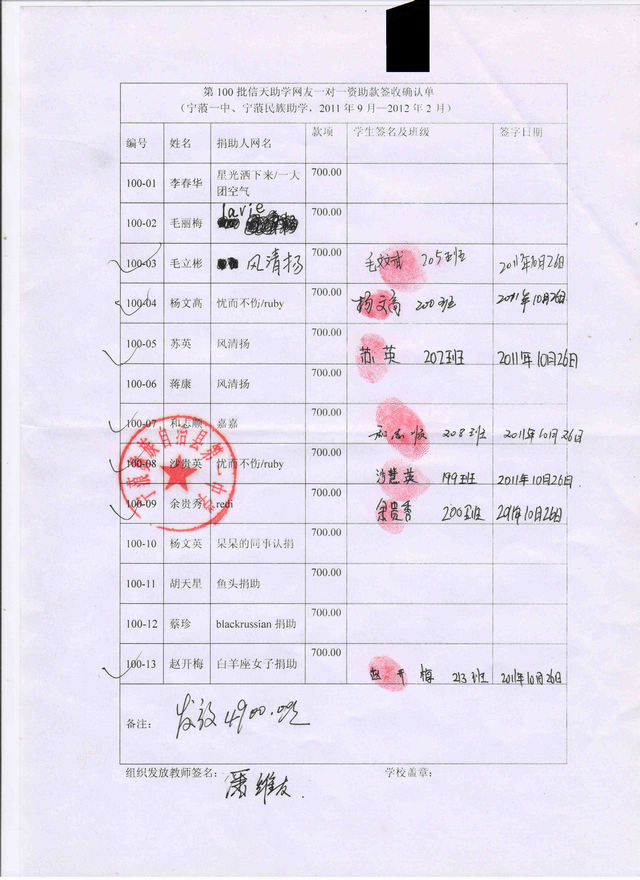 第100批信天助学网友一对一资助款签收确认单
(宁蒗一中、宁蒗民族助学，2011年9月—2012年2月)
编号 姓名 捐助人网名 款项 学生签名及班级 签字日期
100-01 李春华 星光洒下来/一大团空气 700.00
100-02 毛丽梅 lavie 700.00
100-03 毛立彬 风清扬 700.00 205班 2011年10月26日
100-04 杨文高 忧而不伤/ruby 700.00 杨文高 200班 2011年10月26日
100-05 苏英 风清扬 700.00 苏英 207班 2011年10月26日
100-06 蒋康 风清扬 700.00
100-07 和志顺 嘉嘉 700.00 和志顺 208班 2011年10月26日
100-08 沙贵英 忧而不伤/ruby 700.00 沙慧英 199班 2011年10月26日
100-09 余贵秀 redi 700.00 余贵秀 200班 2011年10月26日
100-10 杨文英 呆呆的同事认捐 700.00
100-11 胡天星 鱼头捐助 700.00
100-12 蔡珍 blackrussian 捐助 700.00
100-13 赵开梅 白羊座女子捐助 700.00 赵开梅 213班 2011年10月26日
备注： 发放4900.
组织发放教师签名： 维友 学校盖章：
宁蒗彝族自治县第一中学